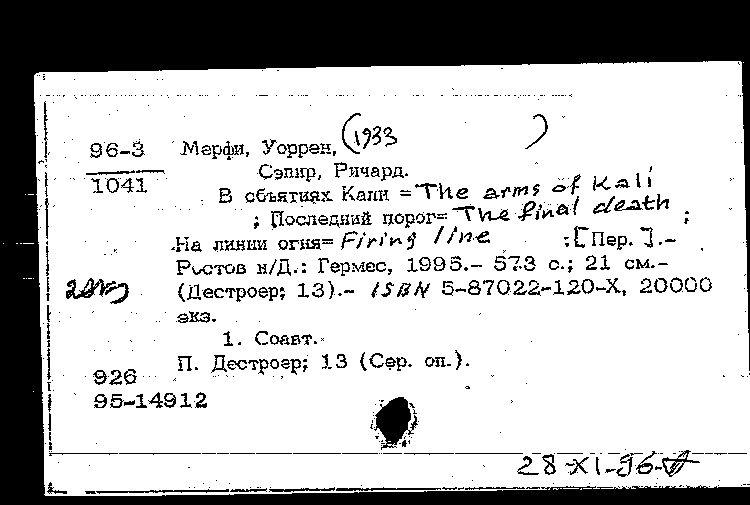 96-3 Мерфи, Уоррен, (1933 )
1041 Сэпир, Ричард.
В объятиях Кали = The arms of Kali
; Последний порог= The final death ;
На линии огня= Firing line :[Пер.].-
Ростов н/Д.: Гермес, 1995.- 573 с.; 21 см.-
(Дестроер; 13).- ISBN 5-87022-120-X, 20000
экз.
1. Соавт.
П. Дестроер; 13 (Сер. оп.).
926
95-14912
28-XI-96-